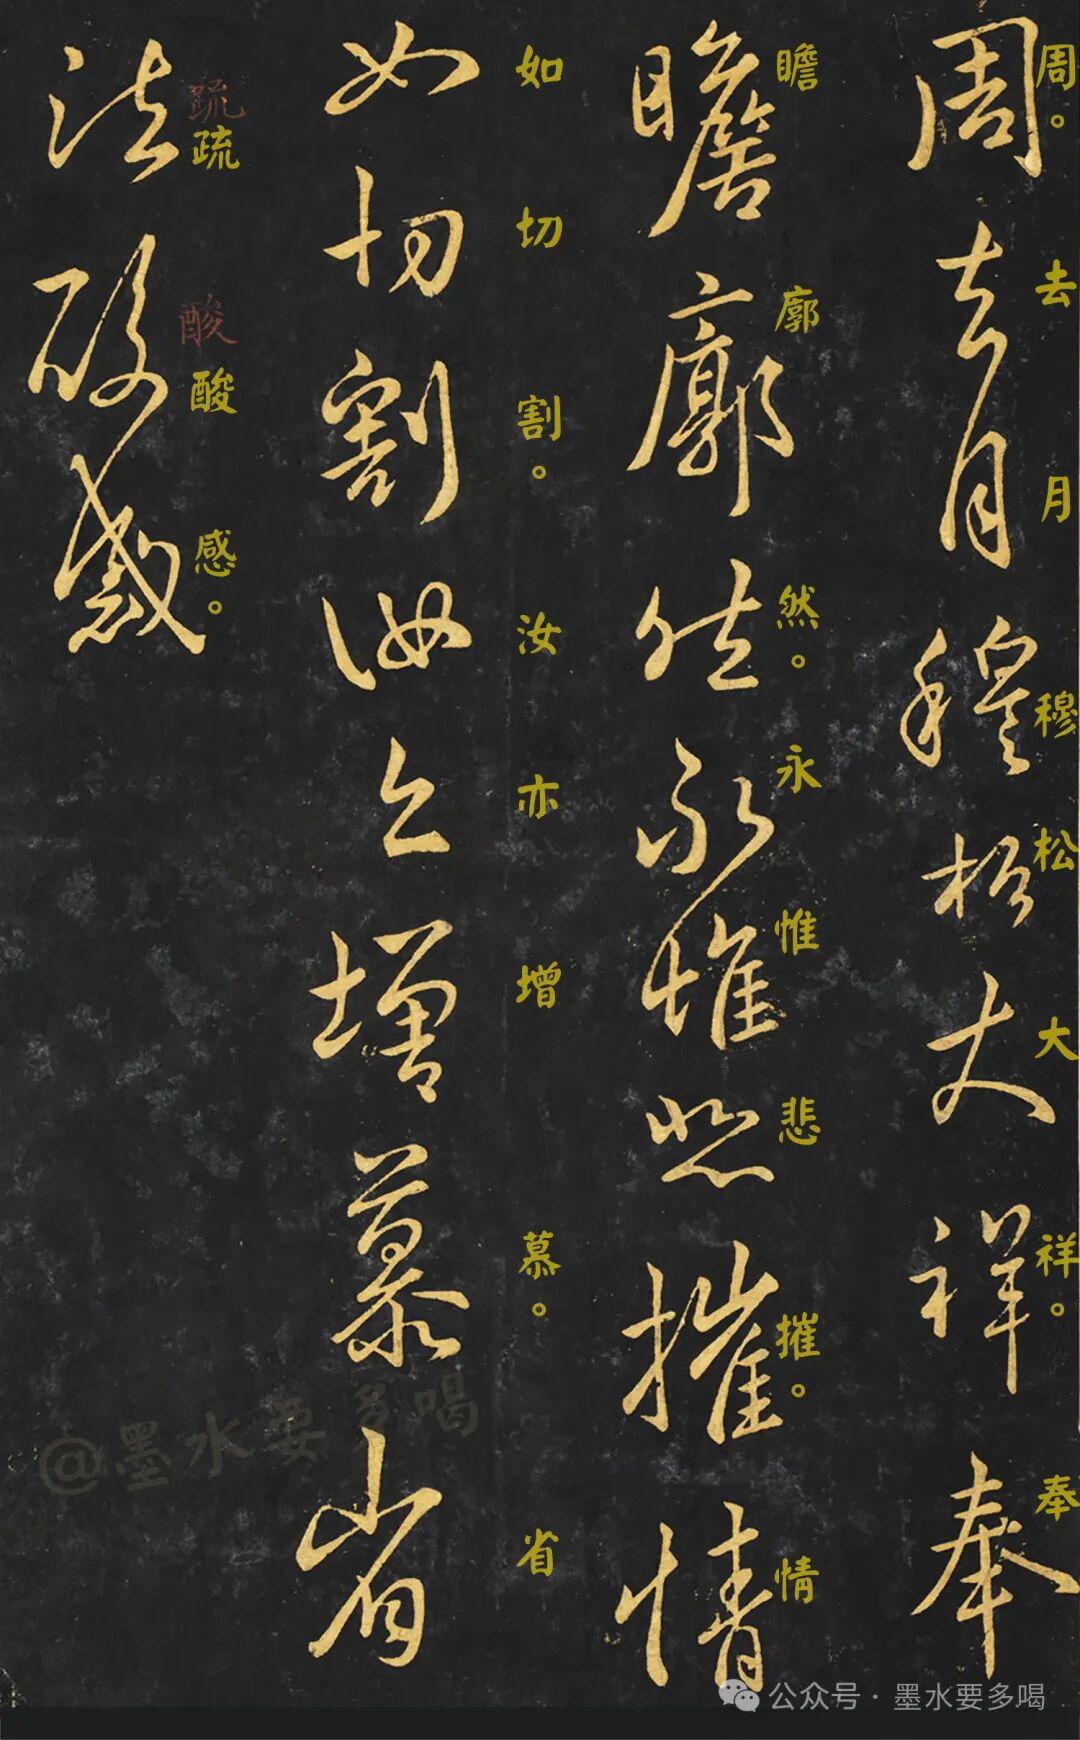 周。去月穆松大祥。奉
周去月穆松大祥奉
瞻廓然。永惟悲摧。情
瞻廓然永惟悲摧情
如切割。汝亦增慕。省
如切割汝亦增慕省
疏酸感。
疏酸
疏酸感
@墨水要多喝
公众号·墨水要多喝